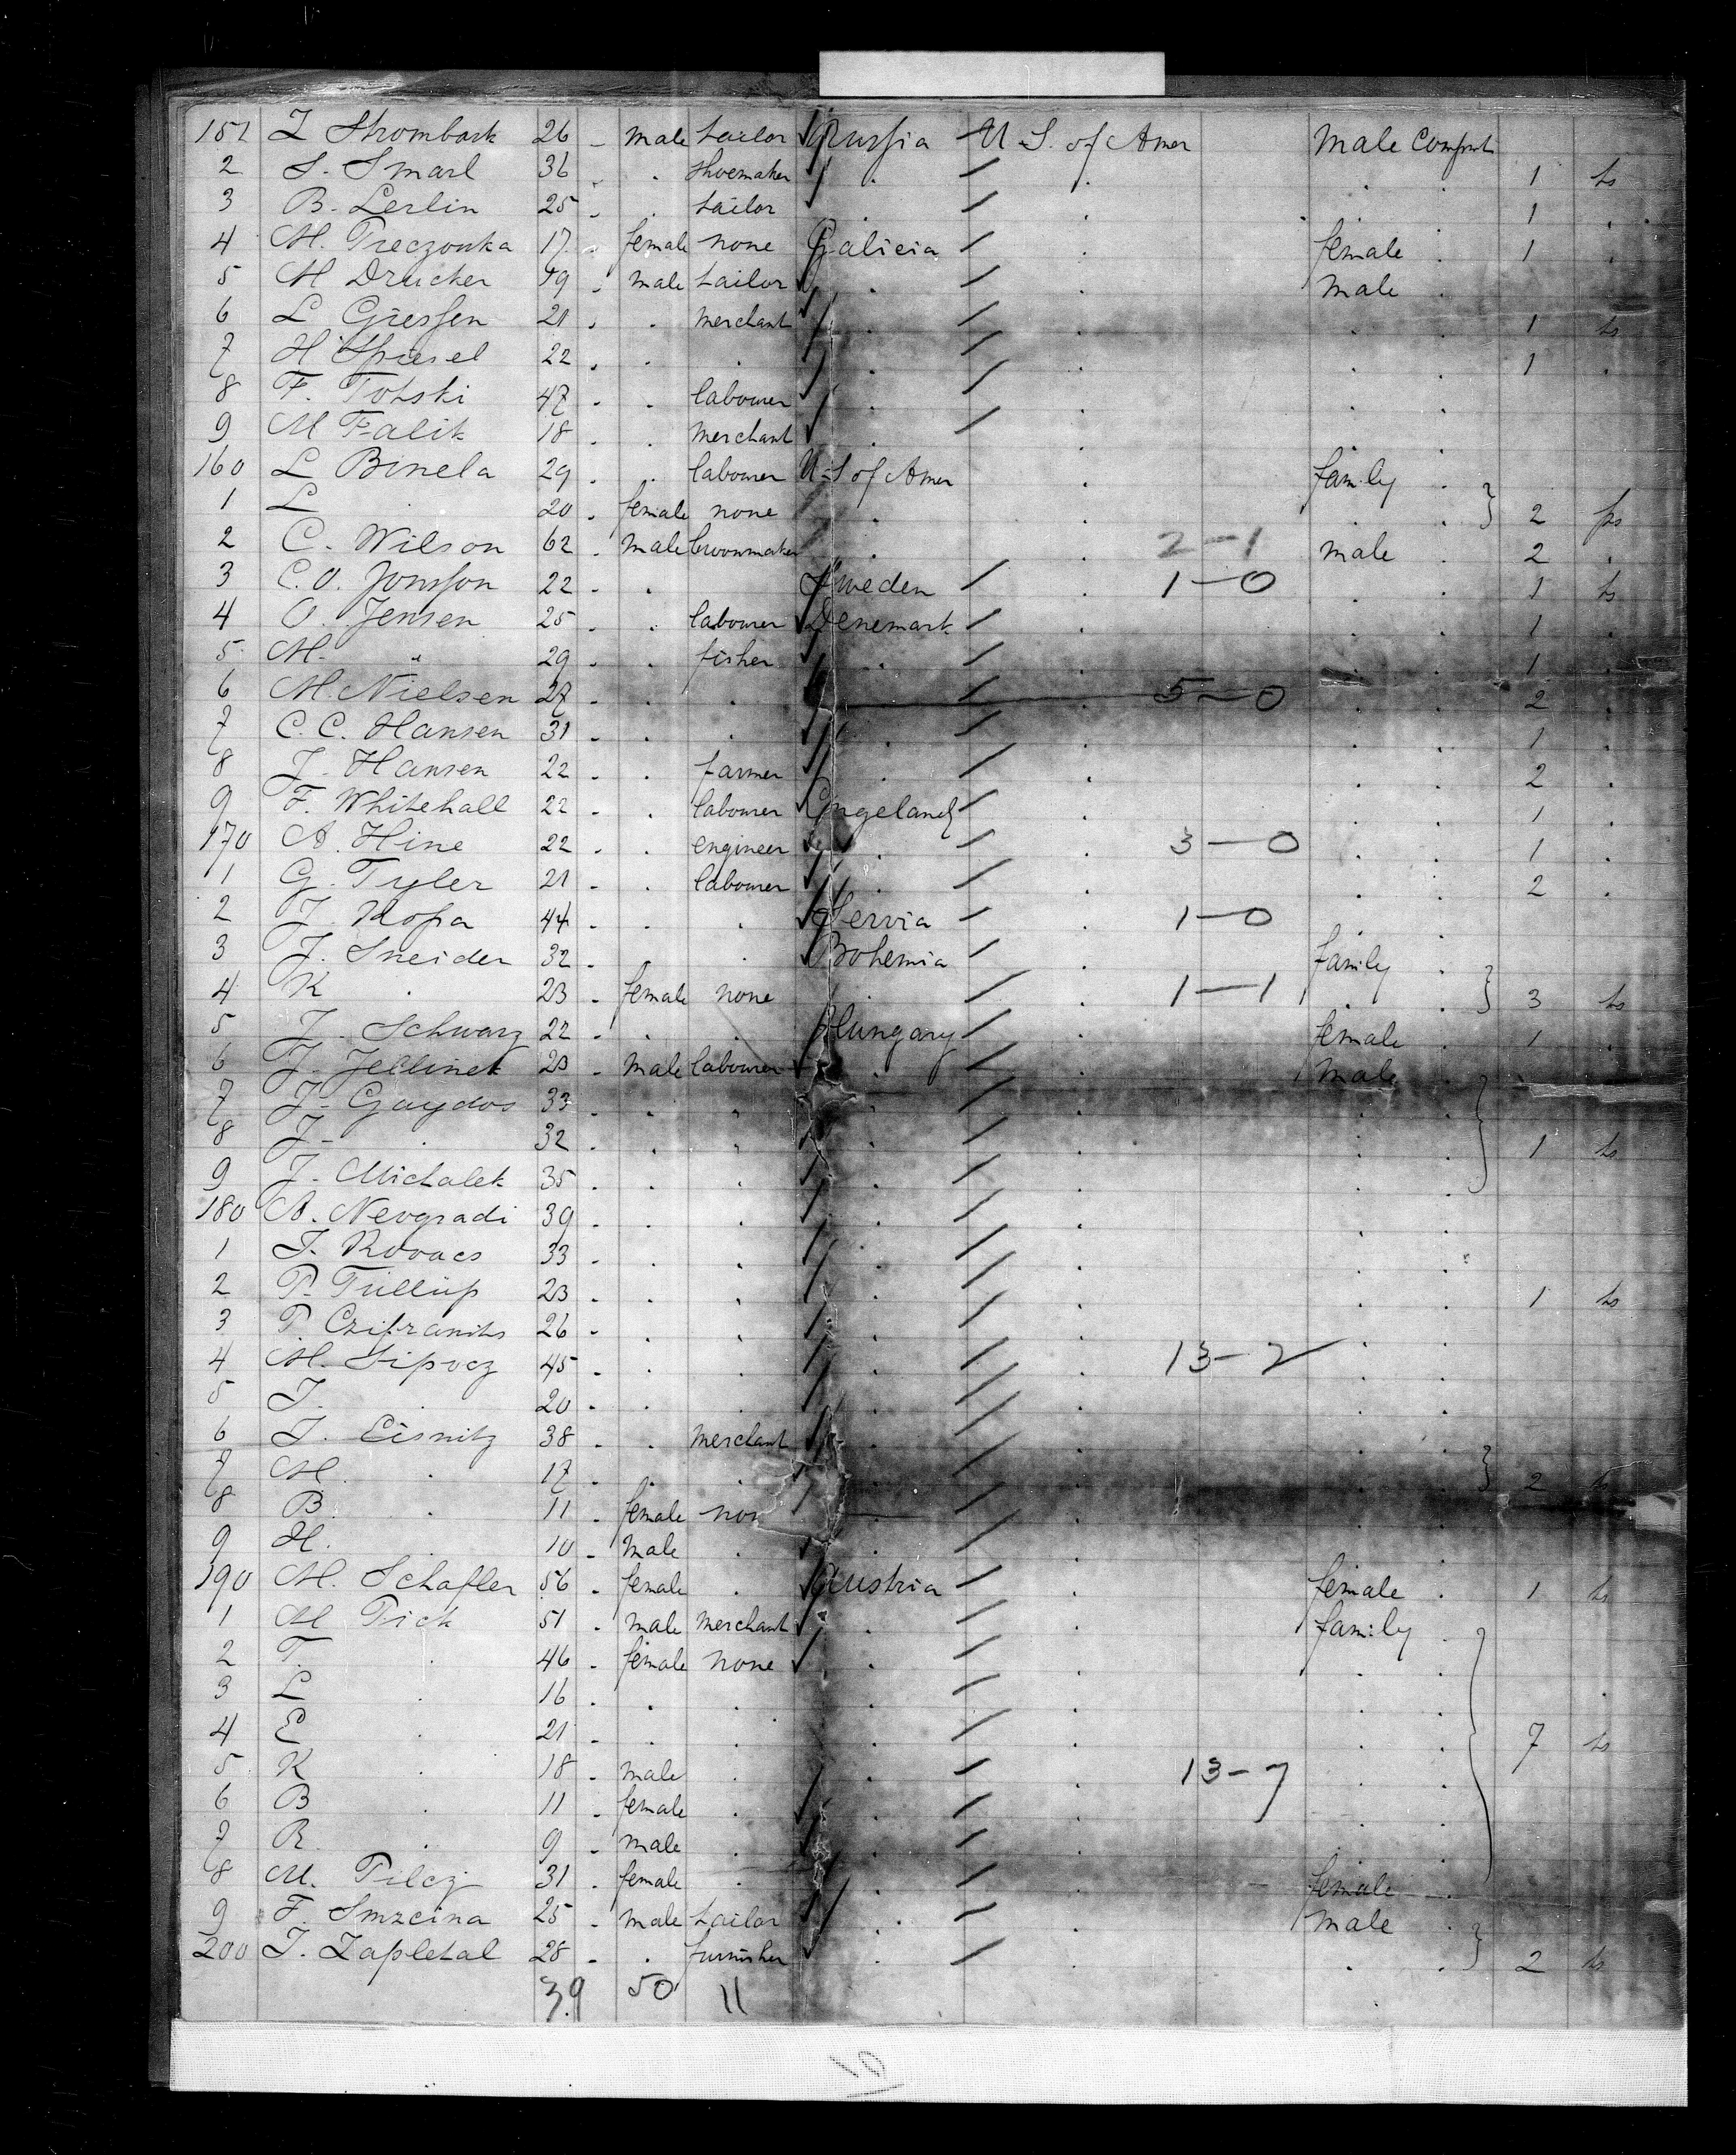 151 Z Strombach 26 - male tailor Russia U.S. of Amer Male Compmt
2 S. Smarl 36 . shoemaker . . . . 1 ts
3 B. Lerlin 25 . tailor . . . . 1 .
4 M. Treczonka 17 . female none Galicia . female . 1 .
5 M Drucher 19 . male tailor . . Male .
6 L Giessen 21 . . merchant . . . . 1 ts
7 H Spiesel 22 . . . . . . . 1 .
8 F. Totski 47 . . labourer . . . .
9 M Falik 18 . . merchant . . . .
160 L Binela 29 . . labourer U.S of Amer . family .
1 L . 20 . female none . . . . 2 ps
2 C. Wilson 62 . male . . 2-1 male . 2 .
3 C.O. Jonsson 22 . . Sweden . 1-0 . . 1 ts
4 O. Jensen 25 . . labourer Denemark . . . 1 .
5 M. " 29 . . fisher . . . . 1 .
6 M. Nielsen 27 . . . . 5-0 . . 2 .
7 C.C. Hansen 31 . . . . . . . 1 .
8 J. Hansen 22 . . farmer . . . . 2 .
9 F. Whitehall 22 . . labourer Engeland . . . 1 .
170 A. Hine 22 . . engineer . . 3-0 . . 1 .
1 G. Tyler 21 . . labourer . . . . 2 .
2 J. Kopa 44 . . . Servia . 1-0 . .
3 J. Sneider 32 . . . Bohemia . family .
4 K . 23 . female none . . 1-1 . . 3 ts
5 J. Schwarz 22 . . . Hungary . female . 1 .
6 J. Jellinek 23 . male labourer . . Male .
7 J. Gaydos 33 . . . . . . .
8 J. . 32 . . . . . . . 1 ts
9 J. Michalek 35 . . . . . . .
180 A. Nevgradi 39 . . . . . . .
1 J. Kovacs 33 . . . . . . .
2 P. Tüllüp 23 . . . . . . . 1 ts
3 P. Czifranits 26 . . . . . . .
4 M. Sipocz 45 . . . . . 13-2 . .
5 J. . 20 . . . . . . .
6 J. Eisnitz 38 . . merchant . . . .
7 M. . 17 . . . . . . . 2 ts
8 B. . 11 . female non . . . .
9 H. . 10 - male . . . . .
190 M. Schafler 56 . female . Austria . female . 1 ts
1 M Pick 51 . male merchant . . family .
2 T. . 46 . female none . . . .
3 L . 16 . . . . . . .
4 E . 21 . . . . . . . 7 ts
5 K . 18 . male . . . 13-7 . .
6 B . 11 . female . . . . .
7 R. . 9 . male . . . . .
8 M. Pilcz 31 . female . . . female .
9 F. Smrcina 25 . male tailor . . male .
200 J. Zapletal 28 . . furnisher . . . . 2 ts
39 50 11